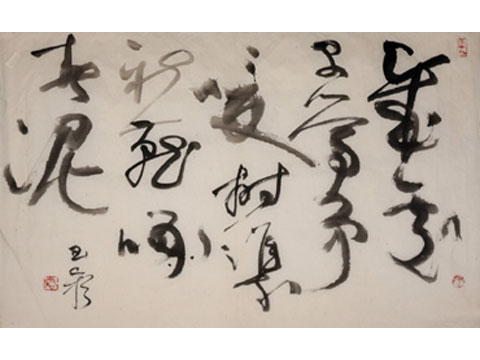 幾處
早鶯爭
暖樹誰家
新燕啄
春泥